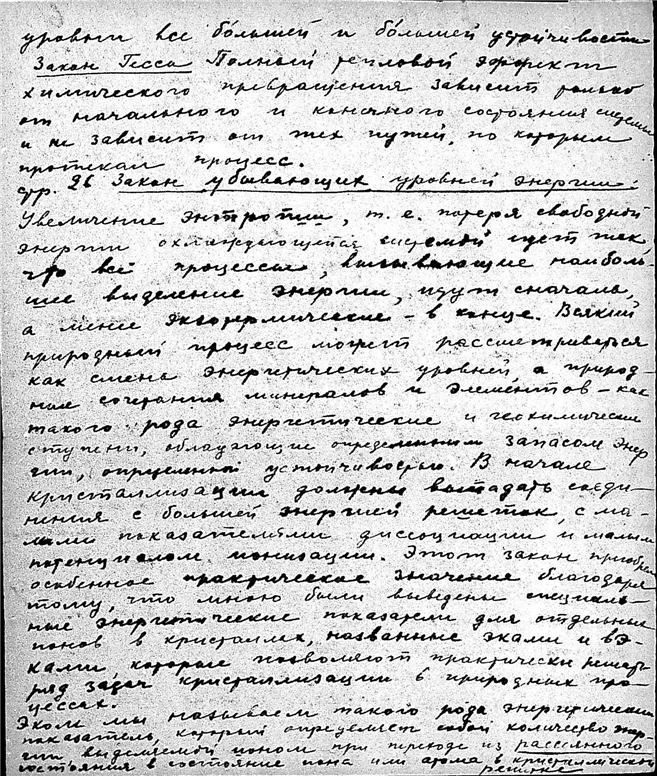 уровни все бо́льшей и бо́льшей устойчивости
Закон Гесса Полный тепловой эффект
химического превращения зависит только
от начального и конечного состояния системы
и не зависит от тех путей, по которым
протекал процесс.
стр. 26 Закон убывающих уровней энергии:
Увеличение энтропии, т.е. потеря свободной
энергии охлаждающейся системой идет так,
что все процессы, вызывающие наиболь-
шее выделение энергии, идут сначала,
а менее экзотермические – в конце. Всякий
природный процесс может рассматриваться
как смена энергетических уровней а природ-
ные сочетания минералов и элементов – как
такого рода энергетические и геохимические
ступени, обладающие определенным запасом энер
гии, определенной устойчивостью. В начале
кристаллизации должны выпадать соеди-
нения с большей энергией решеток, с ма-
лыми показателями диссоциации и малым
потенциалом ионизации. Этот закон приобрел
особенное практическое значение благодаря
тому, что мною были выведены специаль-
ные энергетические показатели для отдельных
ионов в кристаллах, названные эками и вэ-
ками, которые позволяют практически решать
ряд задач кристаллизации в природных про-
цессах.
Эком мы называем такого рода энергетический
показатель, который определяет собой количество энер-
гии выделяемой ионом при переходе из рассеянного
состояния в состояние иона или атома в кристаллической
решетке